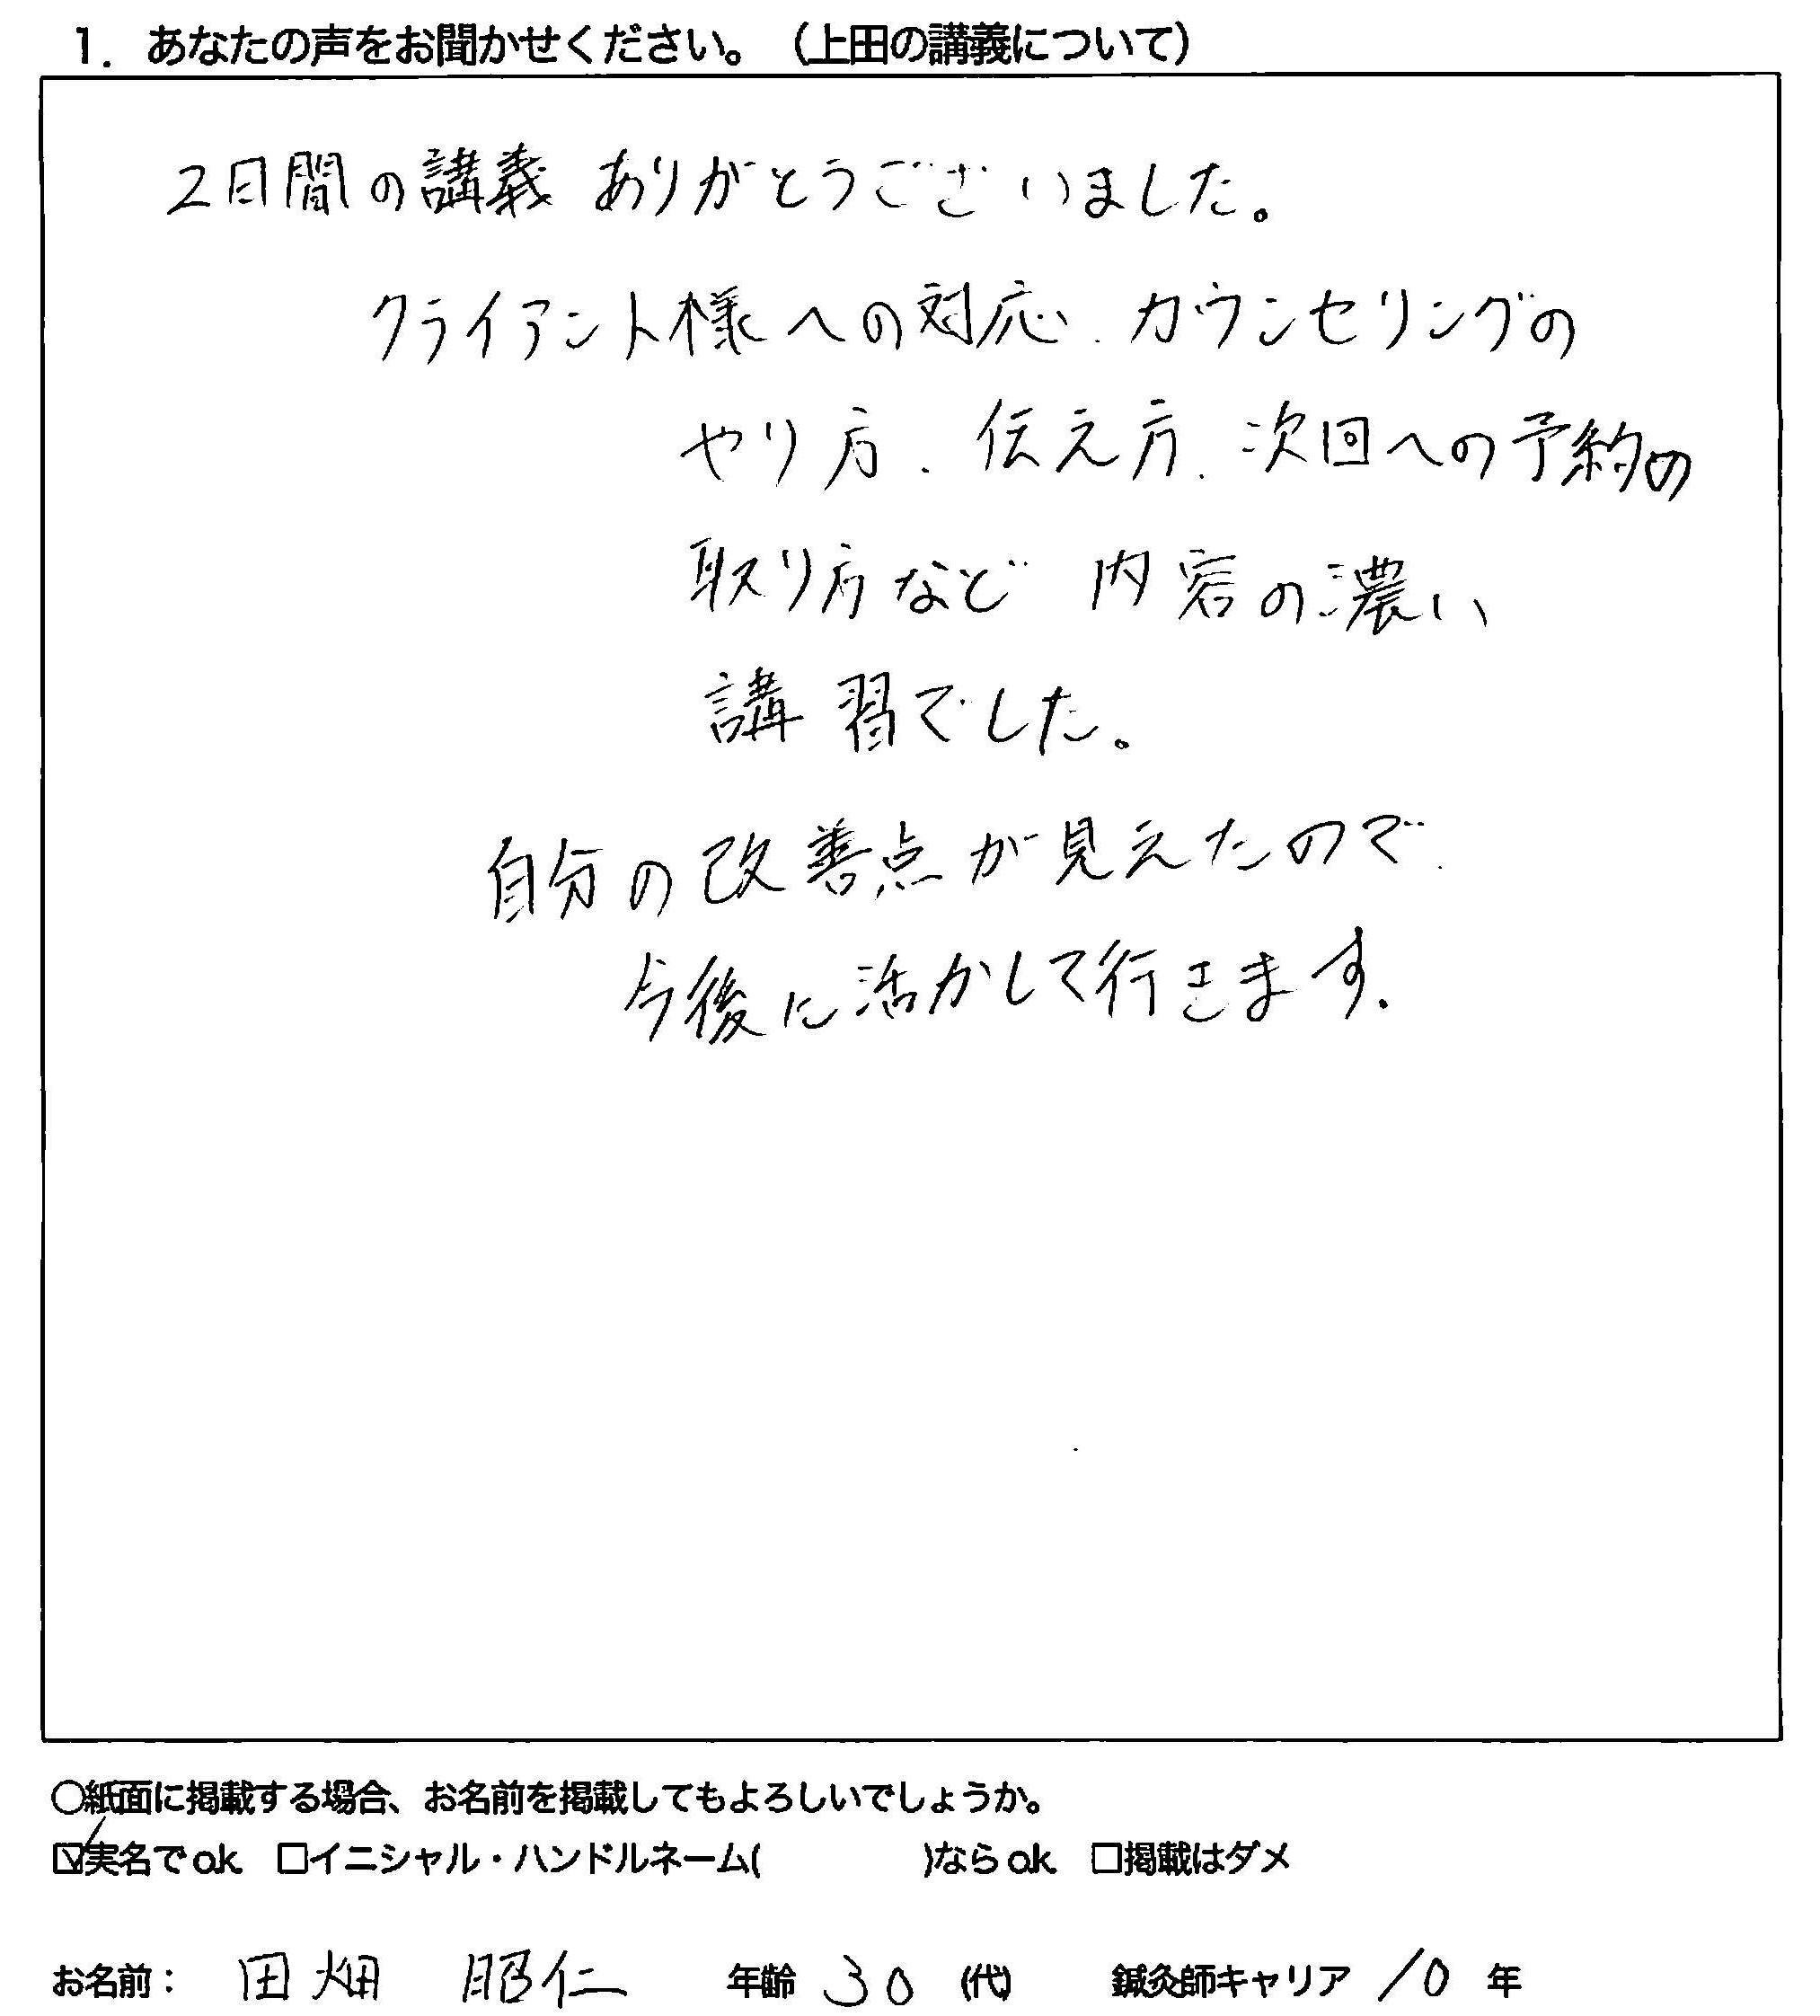 1. あなたの声をお聞かせください。（上田の講義について）
2日間の講義 ありがとうございました。
クライアント様への対応、カウンセリングの
やり方、伝え方、次回への予約の
取り方など 内容の濃い
講習でした。
自分の改善点が見えたので、
今後に活かして行きます。
○紙面に掲載する場合、お名前を掲載してもよろしいでしょうか。
☑実名でok □イニシャル・ハンドルネーム( )ならok □掲載はダメ
お名前： 田畑 昭仁 年齢 30 (代) 鍼灸師キャリア 10 年